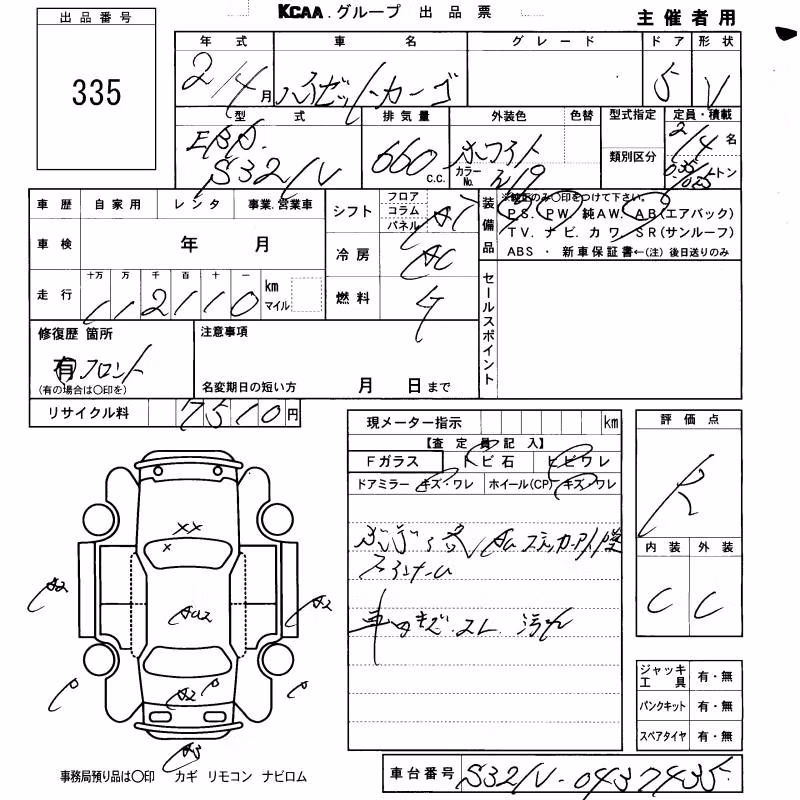 KCAA.グループ 出品票
主催者用
出品番号
335
年式 車名 グレード ドア 形状
2/4月 ハイゼットカーゴ 5 V
型式 排気量 外装色 色替 型式指定 定員・積載
EBD. 660 c.c. ホワイト 2/4名
S321V カラーNo. W19 類別区分 トン
車歴 自家用 レンタ 事業.営業車
シフト フロア コラム パネル AT
装備品 ※純正のみ○印をつけて下さい。
PS. PW. 純AW. AB(エアバック)
TV. ナビ. カワ. SR(サンルーフ)
ABS ・ 新車保証書←(注) 後日送りのみ
車検 年 月
冷房 AC
走行 十万 万 千 百 十 一
112110 km マイル
燃料 ガ
セールスポイント
修復歴 箇所
有 フロント
(有の場合は○印を)
注意事項
名変期日の短い方 月 日まで
リサイクル料 7510円
現メーター指示 km
【査定員記入】
Fガラス トビ石 ヒビワレ
ドアミラー キズ・ワレ ホイール(CP) キズ・ワレ
車内キズ.スレ.汚れ
評価点
R
内装 外装
C C
ジャッキ工具 有・無
パンクキット 有・無
スペアタイヤ 有・無
XX
X
A2
A2
AU2
P
A2 P
P
A3
事務局預り品は○印 カギ リモコン ナビロム
車台番号 S321V-0437435